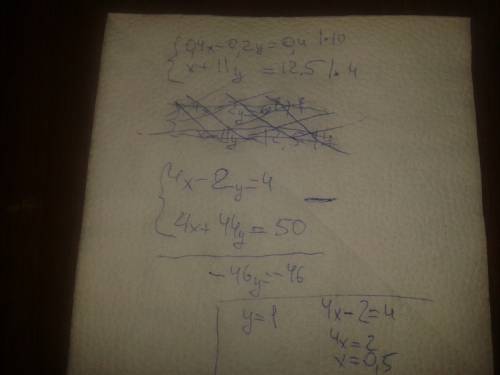 {0,4x-0,2y=0,4 |·10
{x+11y =12,5 |·4
{4x-2y=4 —
{4x+44y=50
-46y=-46
y=1 4x-2=4
4x=2
x=0,5